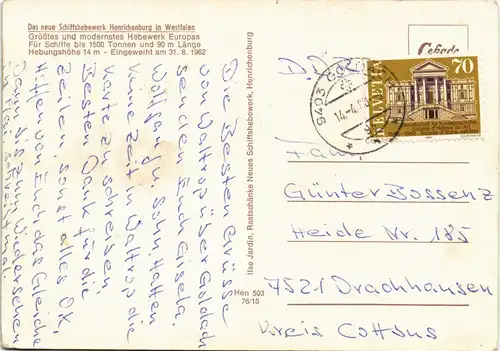 Das neue Schiffshebewerk Henrichenburg in Westfalen
Größtes und modernstes Hebewerk Europas
Für Schiffe bis 1500 Tonnen und 90 m Länge
Hebungshöhe 14 m - Eingeweiht am 31. 8. 1962
Die Besten Grüsse
von Waltrop über Goldach
senden Euch Gisela
Wolfgang u. Sohn. Hatten
keine Zeit in Waltrop
Karte zu schreiben
Besten Dank für die
Zeilen. sonst alles OK,
Hoffen von Euch das Gleiche
Dann bis zum Wiedersehen
im Mai. schreibt mal.
Ilse Jardin, Rastschänke Neues Schiffshebewerk, Henrichenburg
Hen 503
76/10
Cekade
D.D.R.
9403 GOLDACH
14.-4.
HELVETIA
70
Fam.
Günter Bossenz
Heide Nr. 185
7521 Drachhausen
Kreis Cottbus